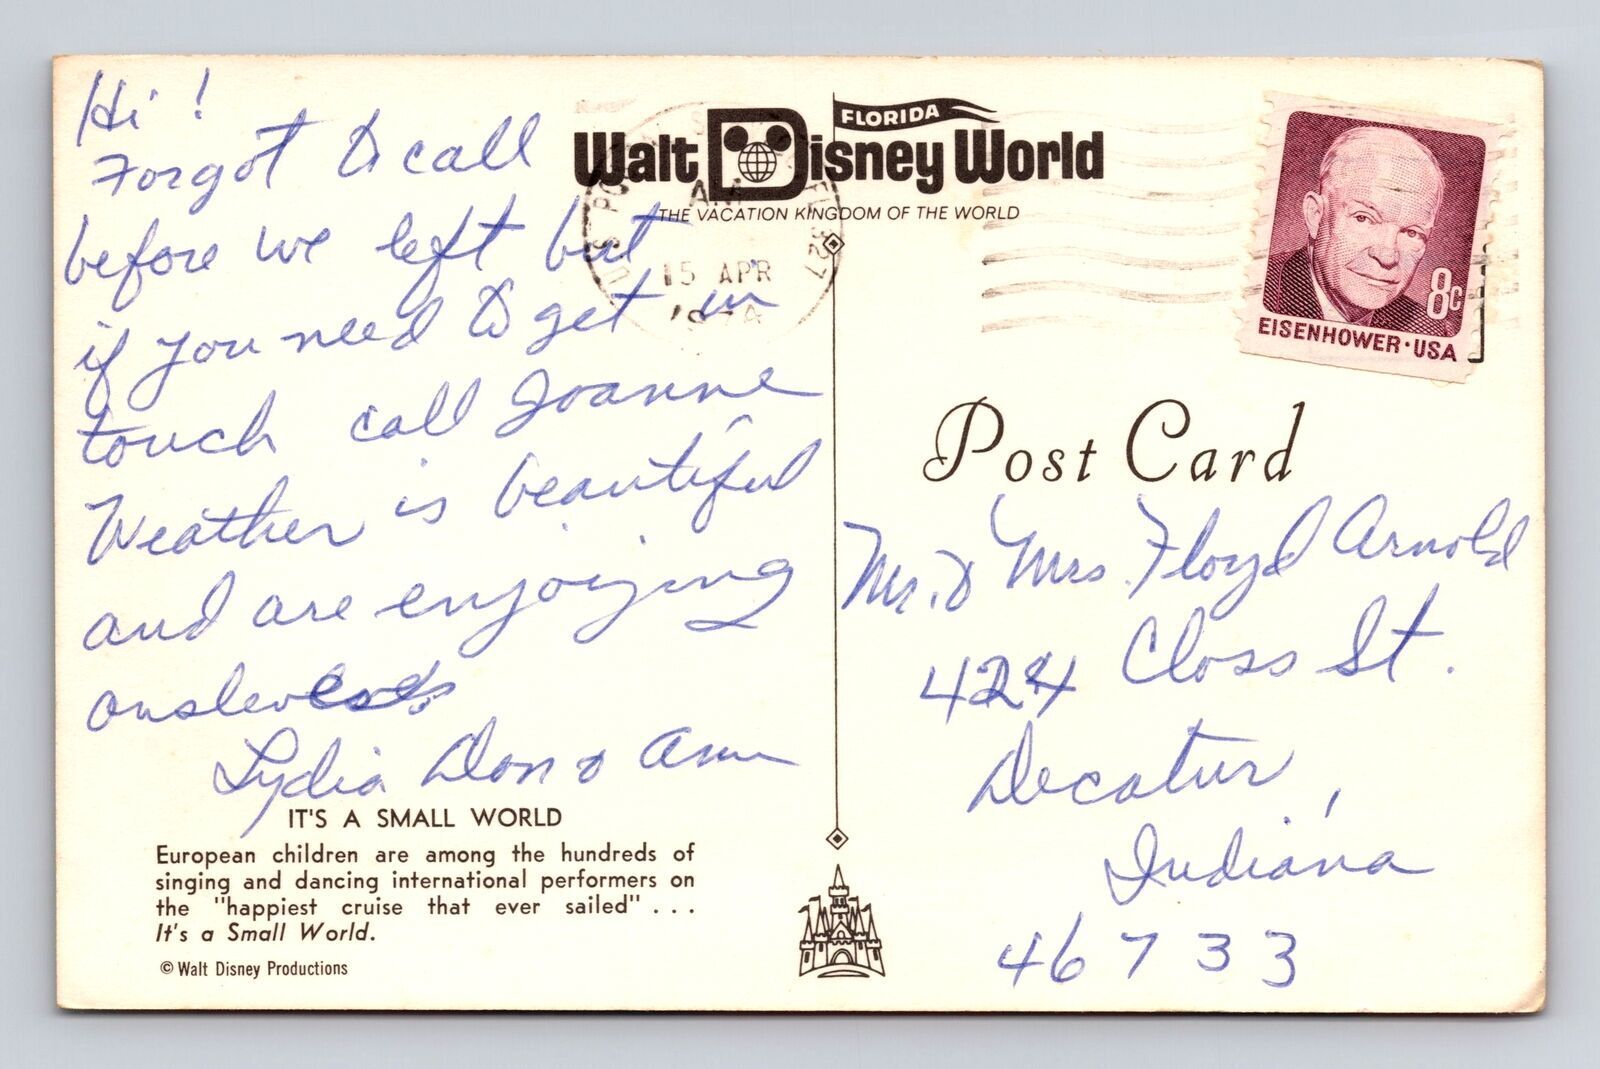 Hi!
Forgot to call
before we left but
if you need to get in
touch call Joanne
Weather is beautiful
and are enjoying
ourselves
Lydia Don & Ann
IT'S A SMALL WORLD
European children are among the hundreds of
singing and dancing international performers on
the "happiest cruise that ever sailed" . . .
It's a Small World.
© Walt Disney Productions
FLORIDA
Walt Disney World
THE VACATION KINGDOM OF THE WORLD
US PO
AM
15 APR
1974
FL 327
8c
EISENHOWER·USA
Post Card
Mr. & Mrs. Floyd Arnold
424 Closs St.
Decatur,
Indiana
46733